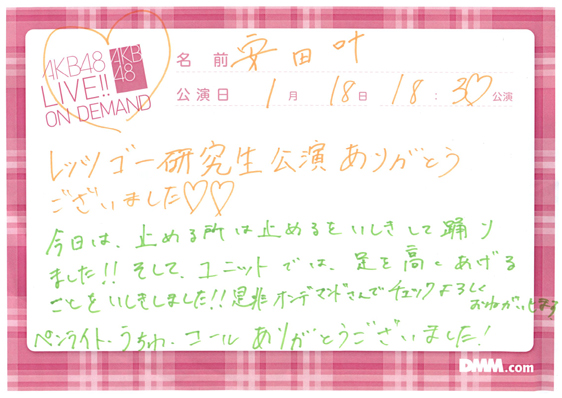 AKB48
LIVE!!
ON DEMAND
AKB
48
名前 安田叶
公演日 1月18日 18:30公演
レッツゴー研究生公演ありがとう
ございました♡♡
今日は、止める所は止めるをいしきして踊り
ました!!そして、ユニットでは、足を高くあげる
ことをいしきしました!!是非オンデマンドさんでチェックよろしく
おねがいします
ペンライト・うちわ・コールありがとうございました!
DMM.com